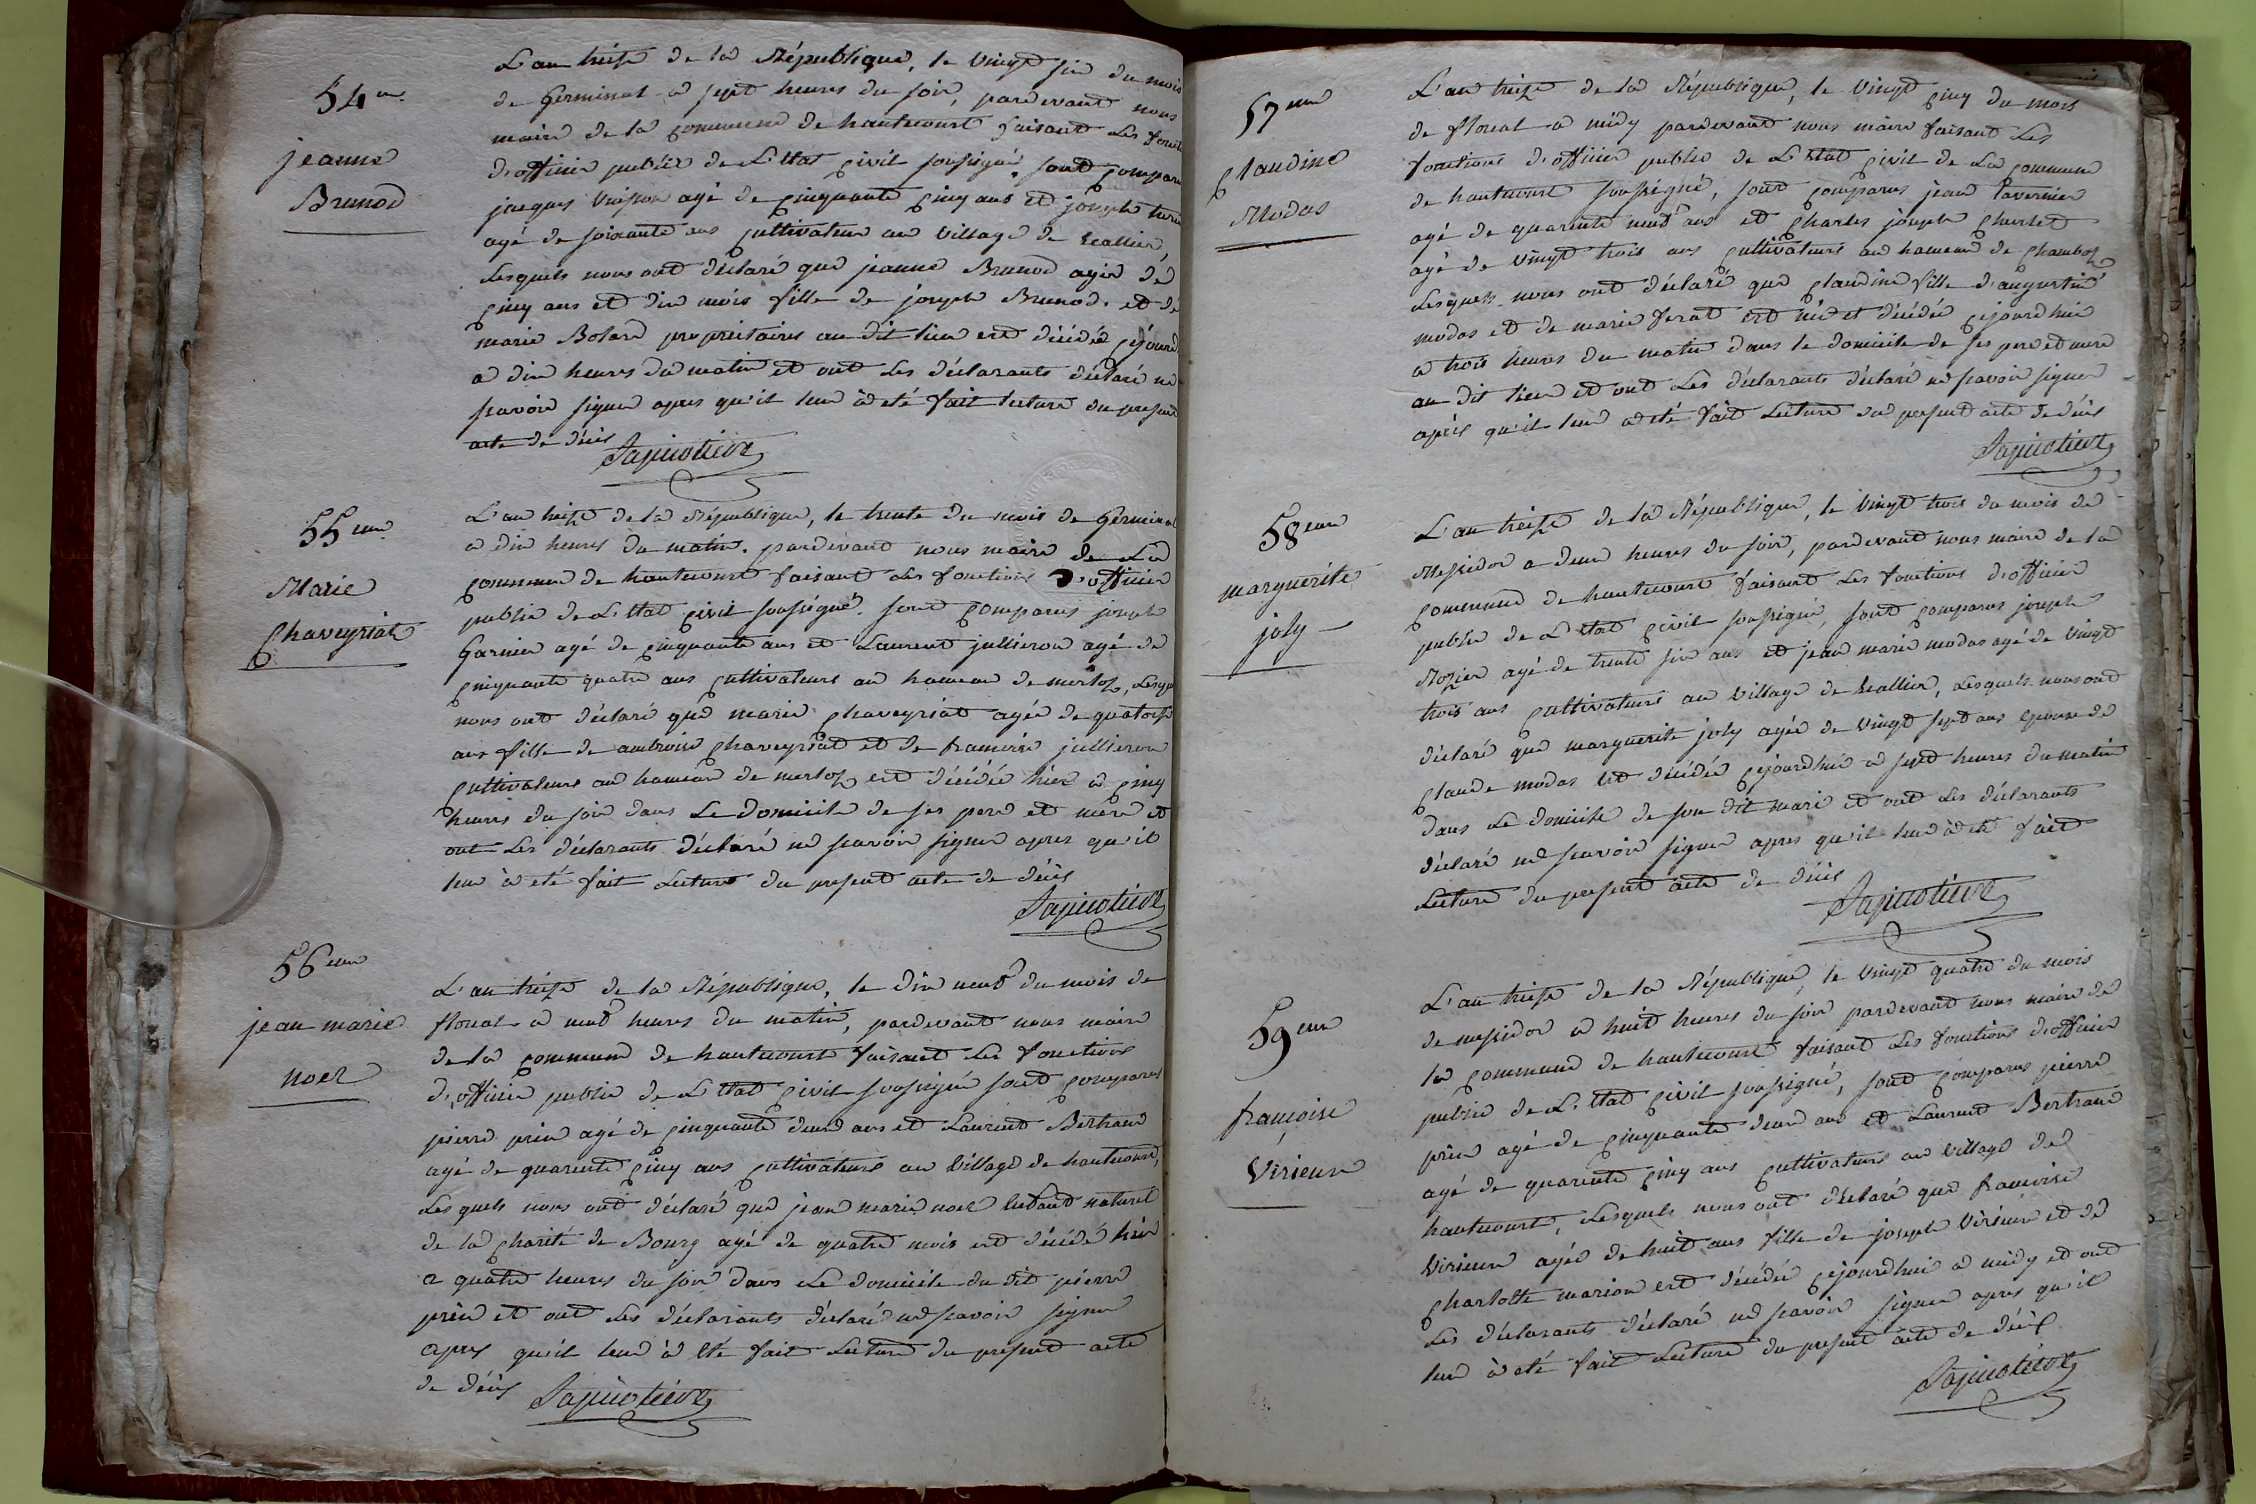 54e
jeanne
Brunod
L'an treize de la République, le vingt six du mois
de Germinal a sept heures du soir, pardevant nous
maire de la commune de hautecourt faisant les foncti
d'officier public de L'Etat civil soussigné, sont comparu
jacques Buisson agé de cinquante cinq ans et joseph
agé de soixante ans cultivateur au village de
Lesquels nous ont déclaré que jeanne Brunod agée de
cinq ans et dix mois fille de joseph Brunod. et de
marie Bolard propriétaires au dit lieu est décédée cejourd
a dix heures du matin et ont Les déclarants déclaré ne
scavoir signer apres qu'il leur à eté fait lecture du present
acte de décès
55eme
Marie
Chaveyriat
L'an treize de la République, le trente du mois de Germinal
a dix heures du matin. pardevant nous maire de La
commune de hautecourt faisant Les fonctions D'officier
public de L'Etat civil soussigné. sont comparus joseph
Garnier agé de cinquante ans et Laurent jullieron agé de
cinquante quatre ans cultivateurs au hameau de merloz, Lesqu
nous ont déclaré que marie chaveyriat agée de quatorze
ans fille de ambroise chaveyriat et de francoise jullieron
cultivateurs au hameau de merloz est décédée hier a cinq
heures du soir dans Le domicile de ses pere et mere et
ont Les déclarants déclaré ne scavoir signer apres qu'il
leur à eté fait Lecture du present acte de décès
56eme
jean marie
noel
L'an treize de la République, le dix neuf du mois de
floreal a neuf heures du matin, pardevant nous maire
de la commune de hautecourt faisant Les fonctions
d'officier public de L'Etat civil soussigné sont comparus
pierre prin agé de cinquante deux ans et Laurent Bertrand
agé de quarente cinq ans cultivateurs au village de hautecourt,
Lesquels nous ont déclaré que jean marie noel Enfant naturel
de la charité de Bourg agé de quatre mois est décédé hier
a quatre heures du soir dans Le domicile du dit pierre
prin et ont Les déclarants déclaré ne scavoir signer
apres qu'il leur à Eté fait Lecture du present acte
de décès
57eme
Claudine
Modas
L'an treize de la République, le vingt cinq du mois
de floreal a midy pardevant nous maire faisant Les
fonctions d'officier public de L'Etat civil de La commune
de hautecourt soussigné, sont comparus jean Tavernier
agé de quarente neuf ans et Charles joseph Churlet
agé de vingt trois ans cultivateurs au hameau de chamboz
Lesquels nous ont déclaré que claudine fille d'augustin
modas et de marie ferat est née et décédée cejourdhui
a trois heures du matin dans le domicile de ses pere et mere
au dit lieu et ont Les déclarants déclaré ne scavoir signer
après qu'il leur a eté fait Lecture du present acte de décès
58eme
marguerite
joly
L'an treize de la République, le vingt trois du mois de
Messidor a deux heures du soir, pardevant nous maire de la
commune de hautecourt faisant Les fonctions d'officier
public de L'Etat civil soussigné, sont comparus joseph
Rozier agé de trente six ans et jean marie modas agé de vingt
trois ans cultivateurs au village de, Lesquels nous ont
déclaré que marguerite joly agée de vingt sept ans Epouse de
claude modas est décédée cejourdhui a sept heures du matin
dans Le domicile de son dit mari et ont Les déclarants
déclaré ne scavoir signer apres qu'il leur à eté fait
Lecture du present acte de décès
59eme
françoise
Virieux
L'an treize de la République, le vingt quatre du mois
de messidor a huit heures du soir pardevant nous maire de
la commune de hautecourt faisant Les fonctions d'officier
public de L'Etat civil soussigné, sont comparus pierre
prin agé de cinquante deux ans et Laurent Bertrand
agé de quarente cinq ans cultivateurs au village de
hautecourt, Lesquels nous ont déclaré que francoise
Virieux agée de huit ans fille de joseph Virieux et de
Charlotte marion est décédée cejourdhui a midy et ont
Les déclarants déclaré ne scavoir signer apres qu'il
leur à eté fait Lecture du present acte de décès